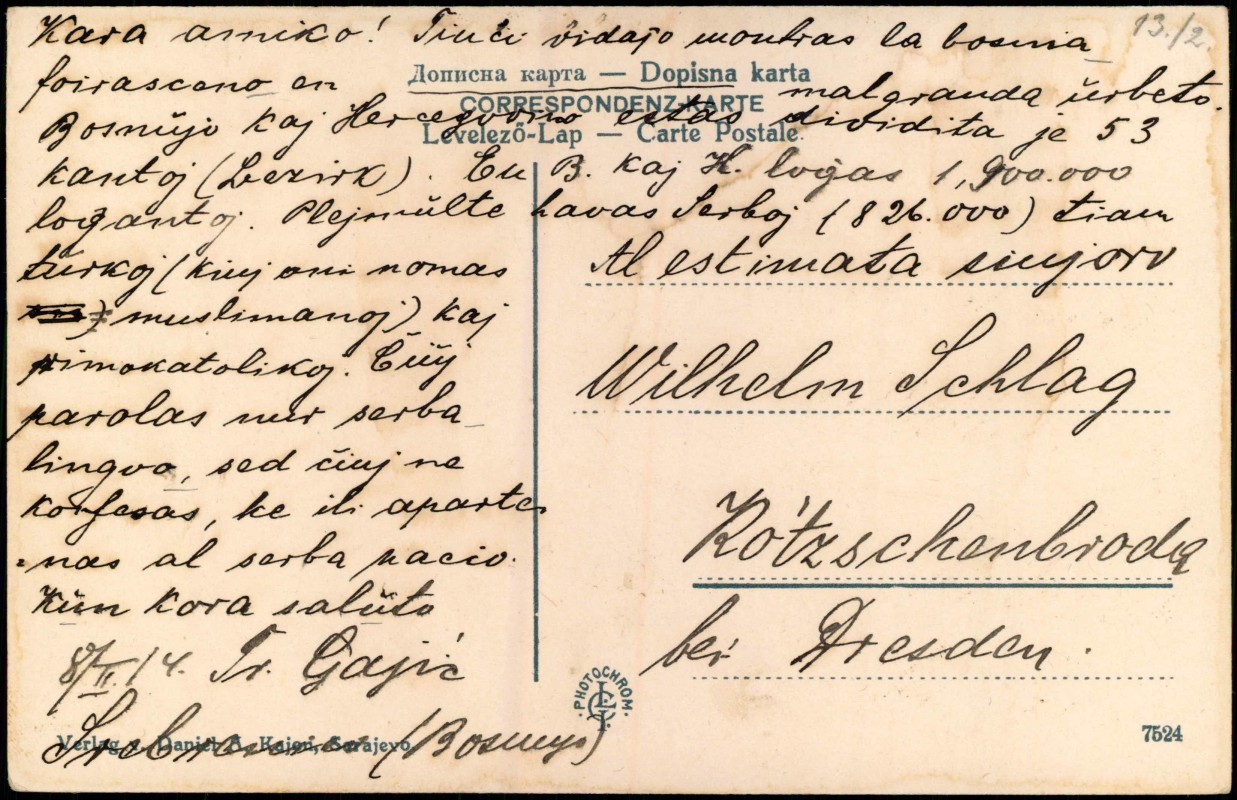 13./2.
Kara amiko! Tiuči vidajo montras la bosnia
foirasceno en malgranda ŭrbeto.
Дописна карта — Dopisna karta
CORRESPONDENZ-KARTE
Levelező-Lap — Carte Postale
Bosnŭjo kaj Hercegovino estas dividita je 53
kantoj (Bezirk). En B. kaj H. loĝas 1,900.000
loĝantoj. Plejmŭlte havas Serboj (826.000) tiam
tŭrkoj (kiuj oni nomas
muslimanoj) kaj
rimokatolikoj. Čiŭj
parolas nur serba
lingvo, sed čiuj ne
konfesas, ke ili aparte
=nas al serba nacio.
Kŭn kora salŭto
8/II.14. Tr. Gajić
Srebrenica (Bosnujo)
Al estimata sinjoro
Wilhelm Schlag
Kötzschenbroda
bei Dresden.
PHOTOCHROM.
Verlag v. Daniel A. Kajon, Sarajevo
7524